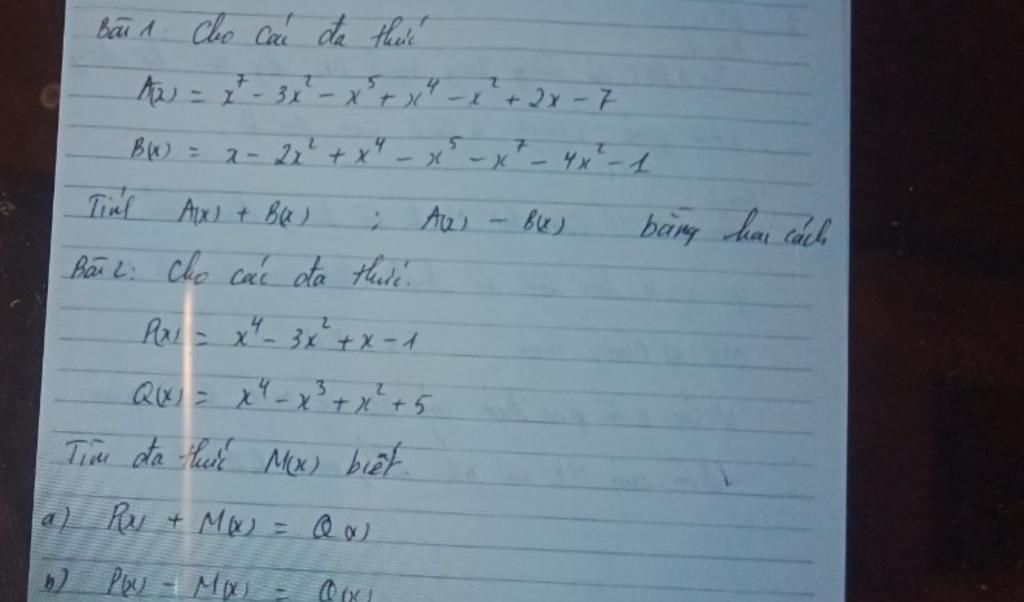 Bài 1 Cho các đa thức
A(x) = x⁷ - 3x² - x⁵ + x⁴ - x² + 2x - 7
B(x) = x - 2x² + x⁴ - x⁵ - x⁷ - 4x² - 1
Tính A(x) + B(x) ; A(x) - B(x) bằng hai cách
Bài 2: Cho các đa thức.
P(x) = x⁴ - 3x² + x - 1
Q(x) = x⁴ - x³ + x² + 5
Tìm đa thức M(x) biết
a) P(x) + M(x) = Q(x)
b) P(x) - M(x) = Q(x)